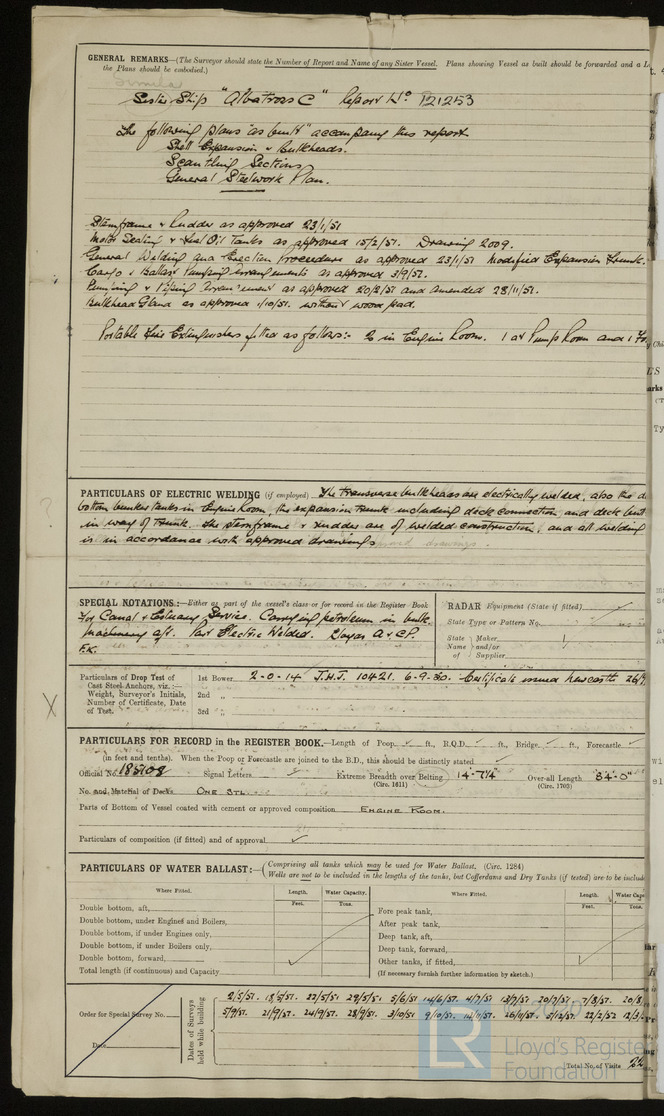 GENERAL REMARKS—(The Surveyor should state the Number of Report and Name of any Sister Vessel. Plans showing Vessel as built should be forwarded and a L
the Plans should be embodied.)
Similar
Sister Ship "Albatross C" Report No 121253
The following plans "as built" accompany this report
Shell Expansion & Bulkheads.
Scantling Sections
General Steelwork Plan.
Sternframe & Rudder as approved 23/1/51
Motor Seating & Fuel Oil Tanks as approved 15/2/51. Drawing 2009.
General Welding and Erection procedure as approved 23/1/51 Modified Expansion Trunk.
Cargo & Ballast Pumping arrangements as approved 3/9/51.
Pumping & Piping Arrangement as approved 20/2/51 and amended 28/11/51.
Bulkhead Gland as approved 1/10/51. without wood pad.
Portable Fire Extinguishers fitted as follows:- 2 in Engine Room. 1 at Pump Room and 1
PARTICULARS OF ELECTRIC WELDING (if employed) The transverse bulkheads are electrically welded, also the d
bottom bunker tanks in Engine Room, the expansion trunk including deck connection, and deck butt
in way of trunk. The sternframe & rudder are of welded construction, and all welding
is in accordance with approved drawings.
SPECIAL NOTATIONS:—Either as part of the vessel's class or for record in the Register Book
For Canal & Estuary Service. Carrying petroleum in bulk.
Machinery aft. Part Electric Welded. A & CP.
F.K.
RADAR Equipment (State if fitted)
State Type or Pattern No.
State Name of
Maker and/or Supplier
Particulars of Drop Test of
Cast Steel Anchors, viz.:—
Weight, Surveyor's Initials,
Number of Certificate, Date
of Test.
1st Bower 2-0-14 J.H.J. 10421. 6-9-30. Certificate issued Newcastle
2nd "
3rd "
PARTICULARS FOR RECORD in the REGISTER BOOK.—Length of Poop ft., R.Q.D. ft., Bridge ft., Forecastle
(in feet and tenths). When the Poop or Forecastle are joined to the B.D., this should be distinctly stated
Official No. 185108 Signal Letters Extreme Breadth over Belting 14-7¼ Over-all Length 84-0"
(Circ. 1611) (Circ. 1703)
No. and Material of Decks ONE STL.
Parts of Bottom of Vessel coated with cement or approved composition ENGINE ROOM.
Particulars of composition (if fitted) and of approval
PARTICULARS OF WATER BALLAST:— Comprising all tanks which may be used for Water Ballast. (Circ. 1284)
Wells are not to be included in the lengths of the tanks, but Cofferdams and Dry Tanks (if tested) are to be includ
Where Fitted. Length. Water Capacity. Where Fitted. Length. Water Capa
Feet. Tons. Feet. Tons.
Double bottom, aft,
Double bottom, under Engines and Boilers,
Double bottom, if under Engines only,
Double bottom, if under Boilers only,
Double bottom, forward,
Total length (if continuous) and Capacity
Fore peak tank,
After peak tank,
Deep tank, aft,
Deep tank, forward,
Other tanks, if fitted,
(If necessary furnish further information by sketch.)
Order for Special Survey No.
Date
Dates of Surveys held while building
2/5/51. 18/5/51. 22/5/51 29/5/51 5/6/51 14/6/51. 4/7/51 13/7/51. 20/7/51. 7/8/51. 20/8/
5/9/51. 21/9/51. 24/9/51. 28/9/51. 3/10/51 9/10/51. 14/11/51. 5/12/51. 22/2/52
Total No. of Visits 22
LR
Lloyd's Registe
Foundation